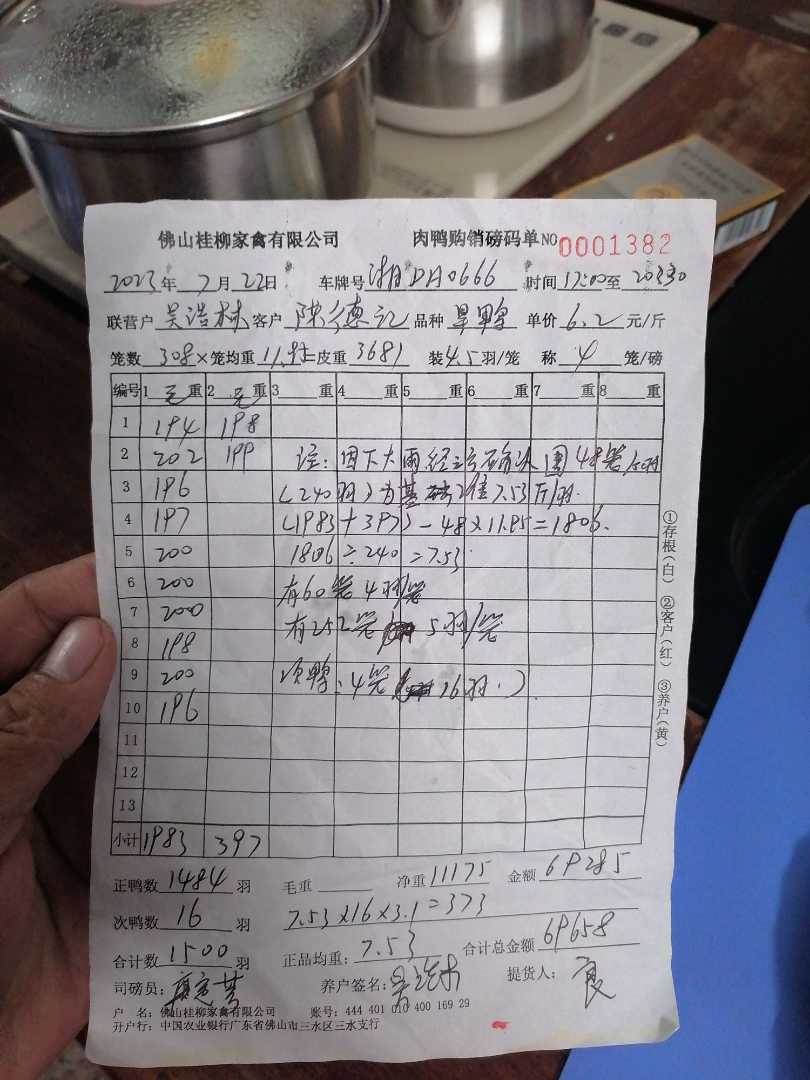 佛山桂柳家禽有限公司 肉鸭购销磅码单 NO 0001382
2023年 7月 22日 车牌号 湘DA0666 时间 17:00至 20:30
联营户 吴浩林 客户 陈德记 品种 旱鸭 单价 6.2 元/斤
笼数 308 × 笼均重 11.95 = 皮重 3681 装 4.5 羽/笼 称 4 笼/磅
编号 1 毛 重 2 毛 重 3 重 4 重 5 重 6 重 7 重 8 重
1 194 198
2 202 199 注:因下大雨,经 48笼
3 196 (240羽)为 7.53斤/羽.
4 197 (1983+397)-48×11.95=1806.
5 200 1806÷240=7.53
6 200 有60笼 4羽/笼
7 200 有252笼 5羽/笼
8 198
9 200 次鸭:4笼 16羽.)
10 196
11
12
13
小计 1983 397
正鸭数 1484 羽 毛重 净重 11175 金额 69285
次鸭数 16 羽 7.53×16×3.1=373
合计数 1500 羽 正品均重: 7.53 合计总金额 69658
司磅员: 养户签名: 提货人:
户 名: 佛山桂柳家禽有限公司 账号: 444 401 010 400 169 29
开户行: 中国农业银行广东省佛山市三水区三水支行
①存根(白) ②客户(红) ③养户(黄)